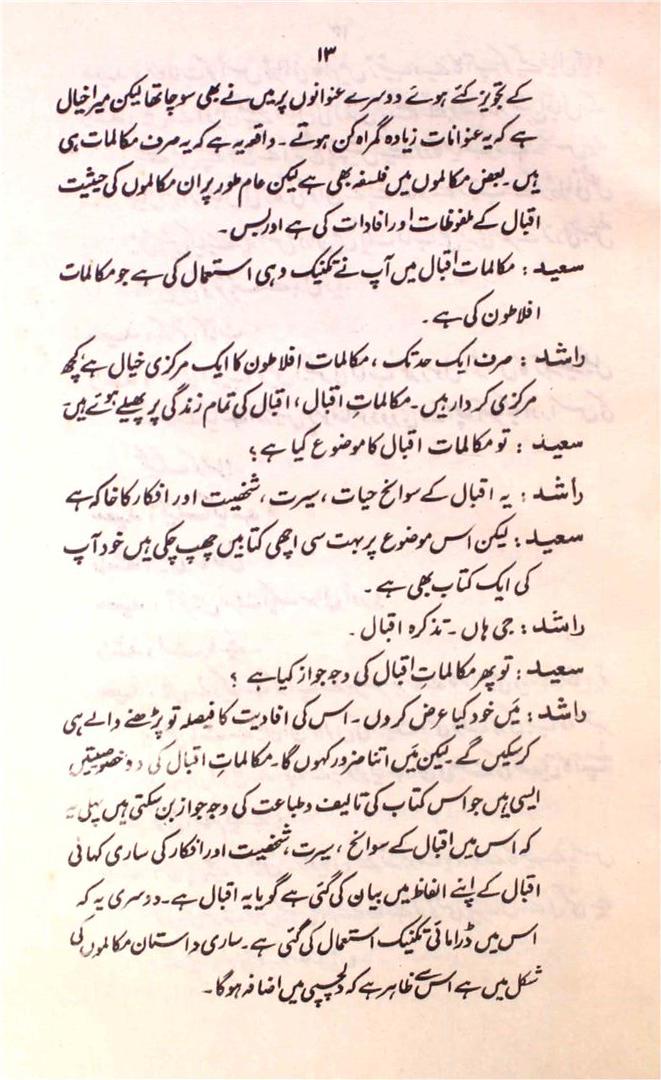 ۱۳
کے تجویز کئے ہوئے دوسرے عنوانوں پر میں نے بھی سوچا تھا لیکن میرا خیال
ہے کہ یہ عنوانات زیادہ گمراہ کن ہوتے۔ واقعہ یہ ہے کہ یہ صرف مکالمات ہی
ہیں۔ بعض مکالموں میں فلسفہ بھی ہے لیکن عام طور پر ان مکالموں کی حیثیت
اقبال کے ملفوظات اور افادات کی ہے اور بس۔
سعید : مکالمات اقبال میں آپ نے تکنیک وہی استعمال کی ہے جو مکالمات
افلاطون کی ہے۔
راشد : صرف ایک حد تک، مکالمات افلاطون کا ایک مرکزی خیال ہے کچھ
مرکزی کردار ہیں۔ مکالماتِ اقبال، اقبال کی تمام زندگی پر پھیلے ہوئے ہیں۔
سعید : تو مکالمات اقبال کا موضوع کیا ہے؟
راشد : یہ اقبال کے سوانح حیات، سیرت، شخصیت اور افکار کا خاکہ ہے
سعید : لیکن اس موضوع پر بہت سی اچھی کتابیں چھپ چکی ہیں خود آپ
کی ایک کتاب بھی ہے۔
راشد : جی ہاں۔ تذکرہ اقبال۔
سعید : تو پھر مکالماتِ اقبال کی وجہ جواز کیا ہے ؟
راشد : میَں خود کیا عرض کروں۔ اس کی افادیت کا فیصلہ تو پڑھنے والے ہی
کر سکیں گے۔ لیکن میَں اتنا ضرور کہوں گا۔ مکالماتِ اقبال کی دو خصوصیتیں
ایسی ہیں جو اس کتاب کی تالیف و طباعت کی وجہ جواز بن سکتی ہیں پہلی یہ
کہ اس میں اقبال کے سوانح، سیرت، شخصیت اور افکار کی ساری کہانی
اقبال کے اپنے الفاظ میں بیان کی گئی ہے گویا یہ اقبال ہے۔ دوسری یہ کہ
اس میں ڈرامائی تکنیک استعمال کی گئی ہے۔ ساری داستان مکالموں کی
شکل میں ہے اس سے ظاہر ہے کہ دلچسپی میں اضافہ ہوگا۔